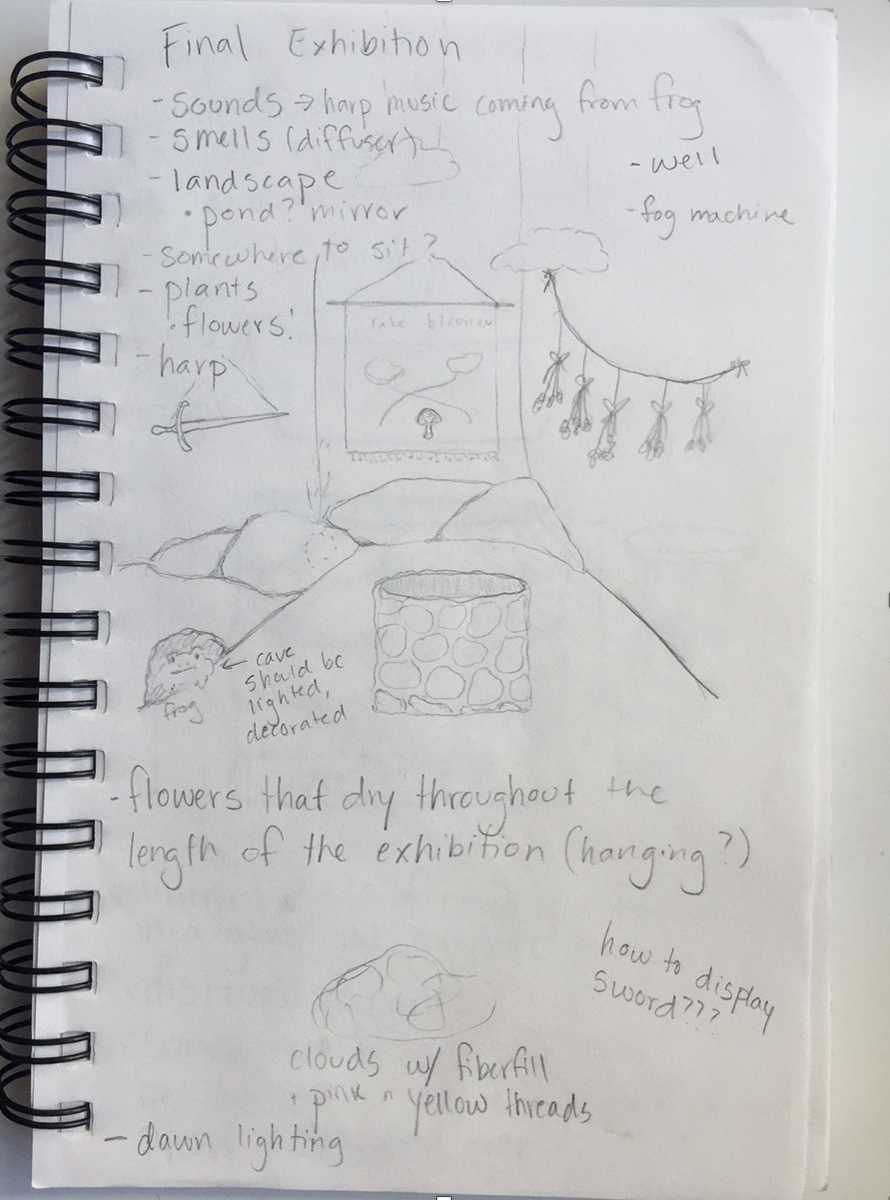 Final Exhibition
- sounds → harp music coming from frog
- smells (diffuser)
- well
- landscape
• pond? mirror
- fog machine
- somewhere to sit?
- plants
• flowers!
- harp
← cave
should be
lighted,
decorated
frog
- flowers that dry throughout the
length of the exhibition (hanging?)
how to display
sword???
clouds w/ fiberfill
+ pink n yellow threads
- dawn lighting